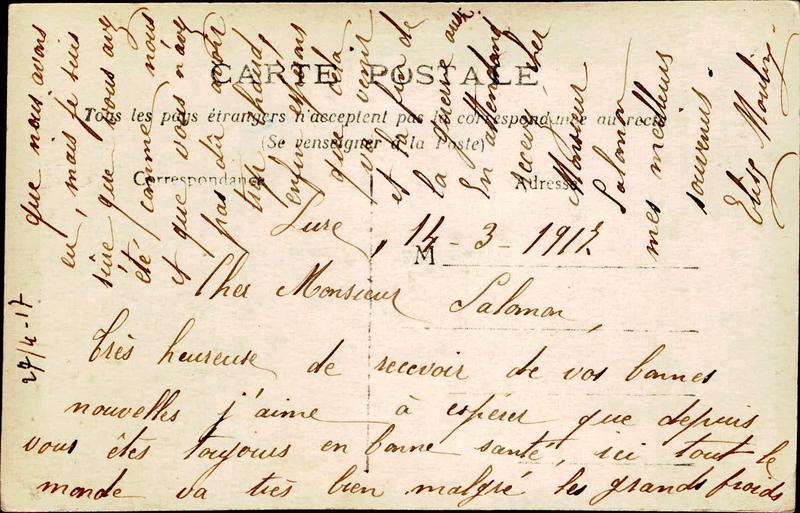 CARTE POSTALE
Tous les pays étrangers n'acceptent pas la correspondance au recto
(Se renseigner à la Poste)
Correspondance
Adresse
M
Lure, 14 - 3 - 1917
Cher Monsieur Salomon,
Très heureuse de recevoir de vos bonnes
nouvelles j'aime à espérer que depuis
vous êtes toujours en bonne santé, ici tout le
monde va très bien malgré les grands froids
que nous avons
eu, mais je suis
sûre que vous avez
été comme nous
et que vous n'avez
pas dû avoir
trop chaud,
enfin espérons
que cela
va finir
et la fin de
la guerre aussi.
En attendant
recevez cher
Monsieur
Salomon
mes meilleurs
souvenirs.
Elise Moulin
27/4-17